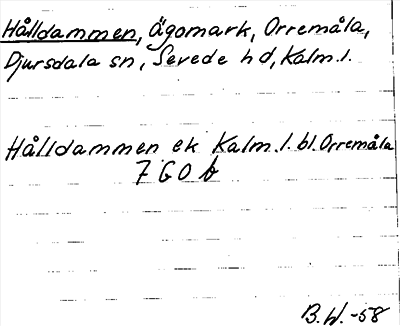 Hålldammen, Ägomark, Orremåla,
Djursdala sn, Sevede hd, Kalm.l.
Hålldammen ek Kalm.l. bl. Orremåla
7 G O b
B.W.-58